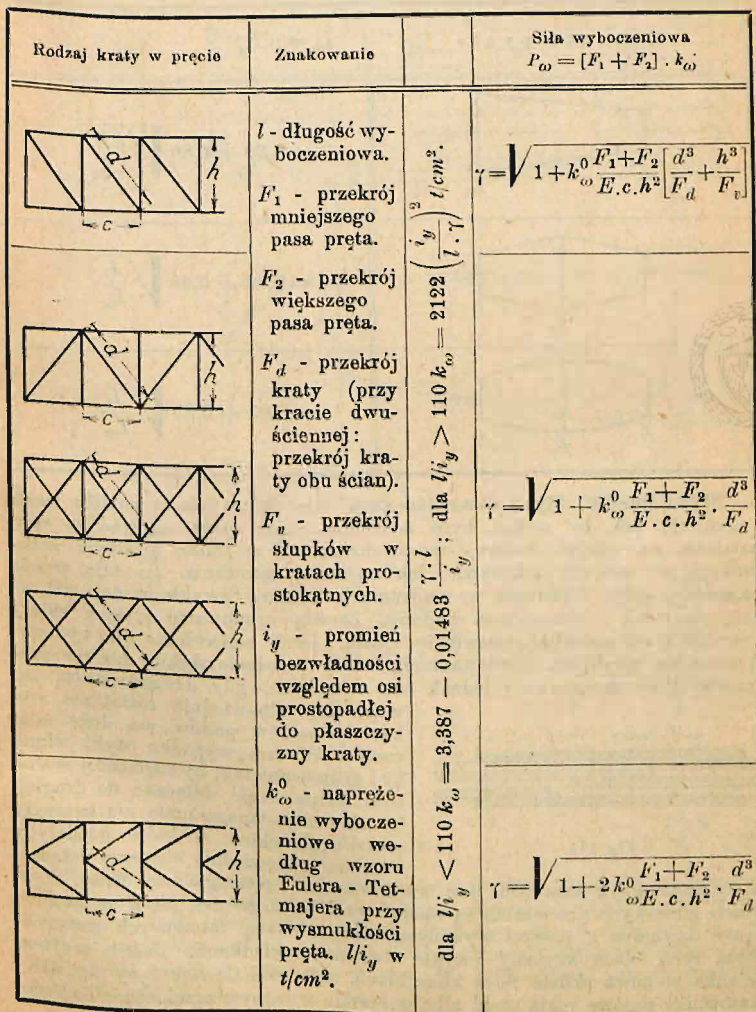 Rodzaj kraty w pręcie
Znakowanie
Siła wyboczeniowa
P_ω = [F₁ + F₂] . k_ω
d
h
c
d
h
c
d
h
c
d
h
c
d
h
c
l - długość wy-
boczeniowa.
F₁ - przekrój
mniejszego
pasa pręta.
F₂ - przekrój
większego
pasa pręta.
F_d - przekrój
kraty (przy
kracie dwu-
ściennej :
przekrój kra-
ty obu ścian).
F_v - przekrój
słupków w
kratach pro-
stokątnych.
i_y - promień
bezwładności
względem osi
prostopadłej
do płaszczy-
zny kraty.
k⁰_ω - napręże-
nie wybocze-
niowe we-
dług wzoru
Eulera - Tet-
majera przy
wysmukłości
pręta. l/i_y w
t/cm².
dla l/i_y < 110 k_ω = 3,387 — 0,01483 γ.l/i_y ; dla l/i_y > 110 k_ω = 2122 (i_y/l.γ)² t/cm².
γ = √(1 + k⁰_ω (F₁+F₂)/(E.c.h²) [d³/F_d + h³/F_v])
γ = √(1 + k⁰_ω (F₁+F₂)/(E.c.h²) . d³/F_d)
γ = √(1 + 2k⁰_ω (F₁+F₂)/(E.c.h²) . d³/F_d)